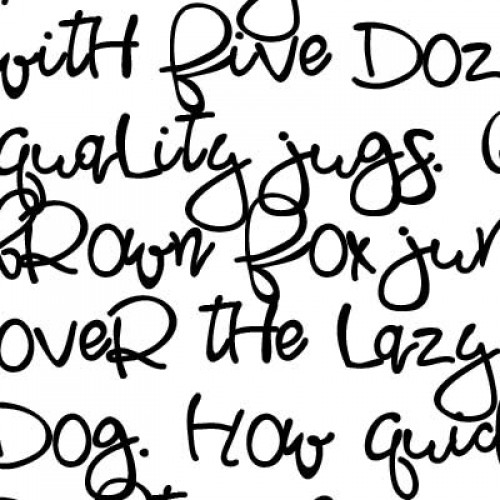 with five Doz
quality jugs.
brown fox jum
over the lazy
Dog. How quic